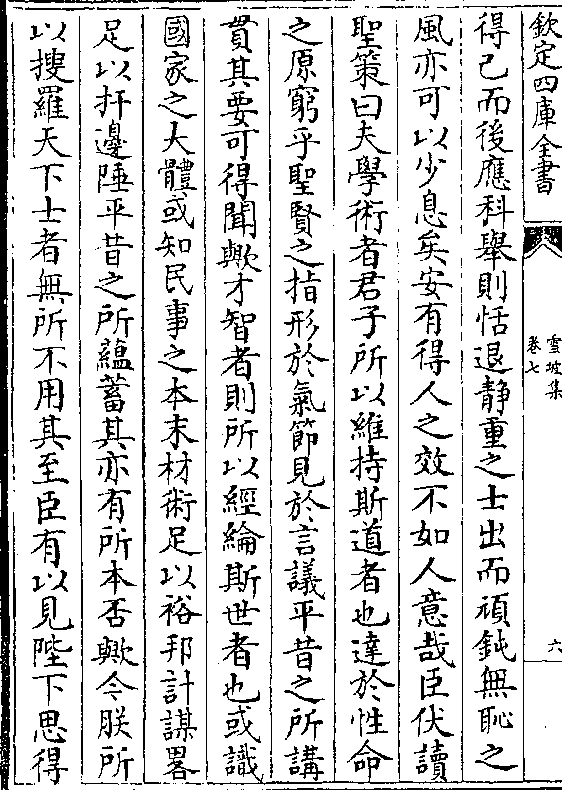 欽定四庫全書
雪坡集
卷七
六
得已而後應科舉則恬退静重之士出而頑鈍無恥之
風亦可以少息矣安有得人之效不如人意哉臣伏讀
聖策曰夫學術者君子所以維持斯道者也達於性命
之原窮乎聖賢之指形於氣節見於言議平昔之所講
貫其要可得聞歟才智者則所以經綸斯世者也或識
國家之大體或知民事之本末材術足以裕邦計謀畧
足以扞邊陲平昔之所蘊蓄其亦有所本否歟今朕所
以搜羅天下士者無所不用其至臣有以見陛下思得